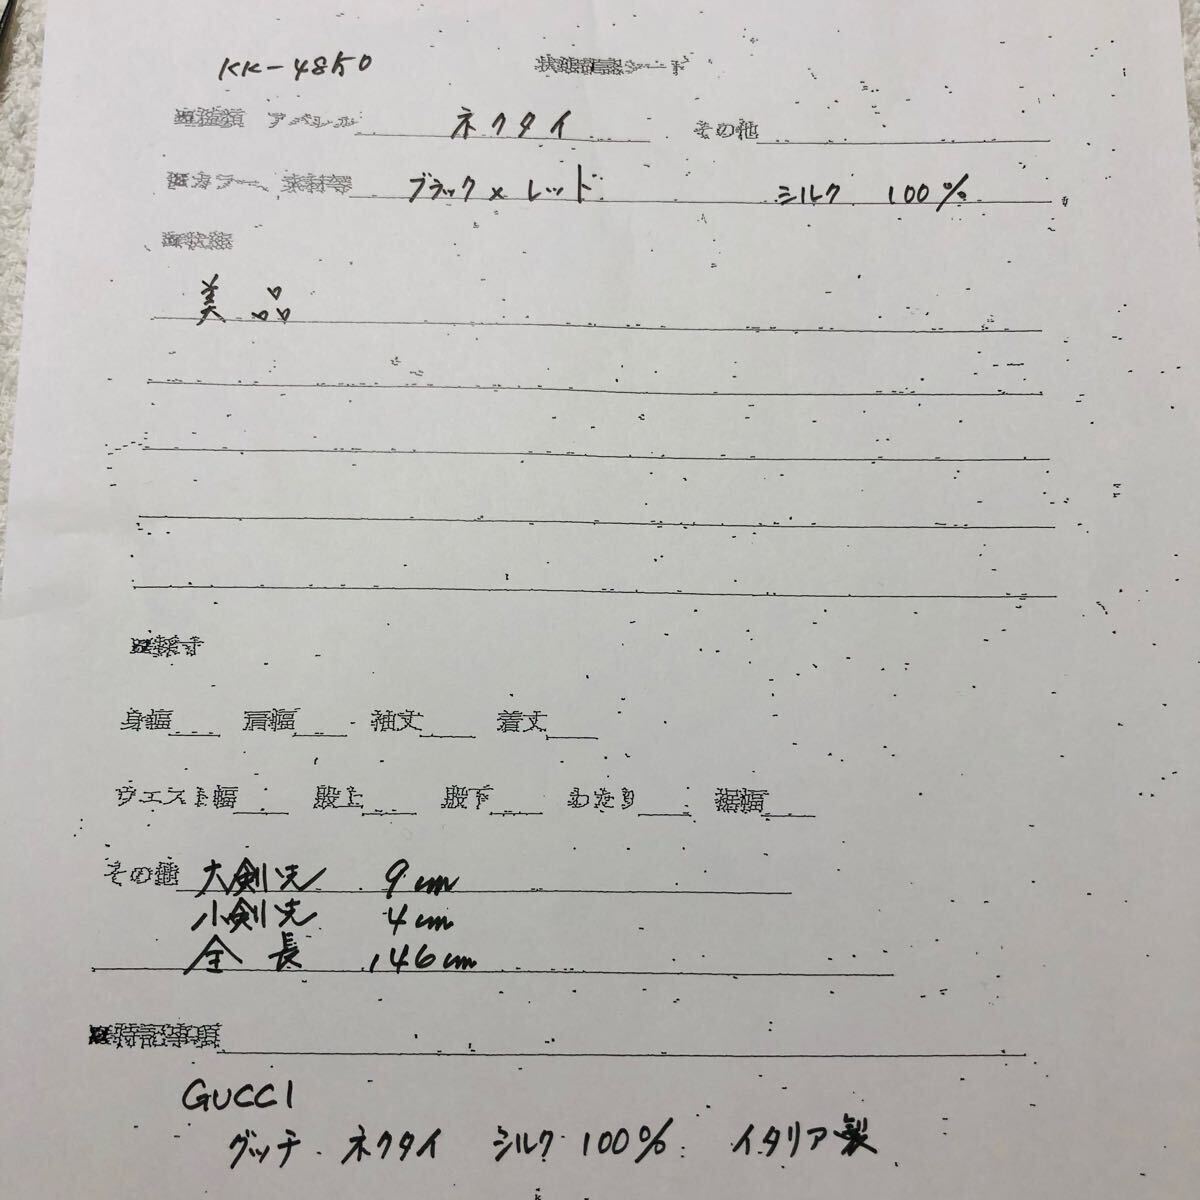 KK-4850
状態確認シート
■種類 アパレル ネクタイ その他
■カラー、素材等 ブラック×レッド シルク 100%
■状態
美品
■採寸
身幅 肩幅 袖丈 着丈
ウエスト幅 股上 股下 わたり 裾幅
その他 大剣先 9cm
小剣先 4cm
全長 146cm
■特記事項
GUCCI
グッチ ネクタイ シルク 100% イタリア製